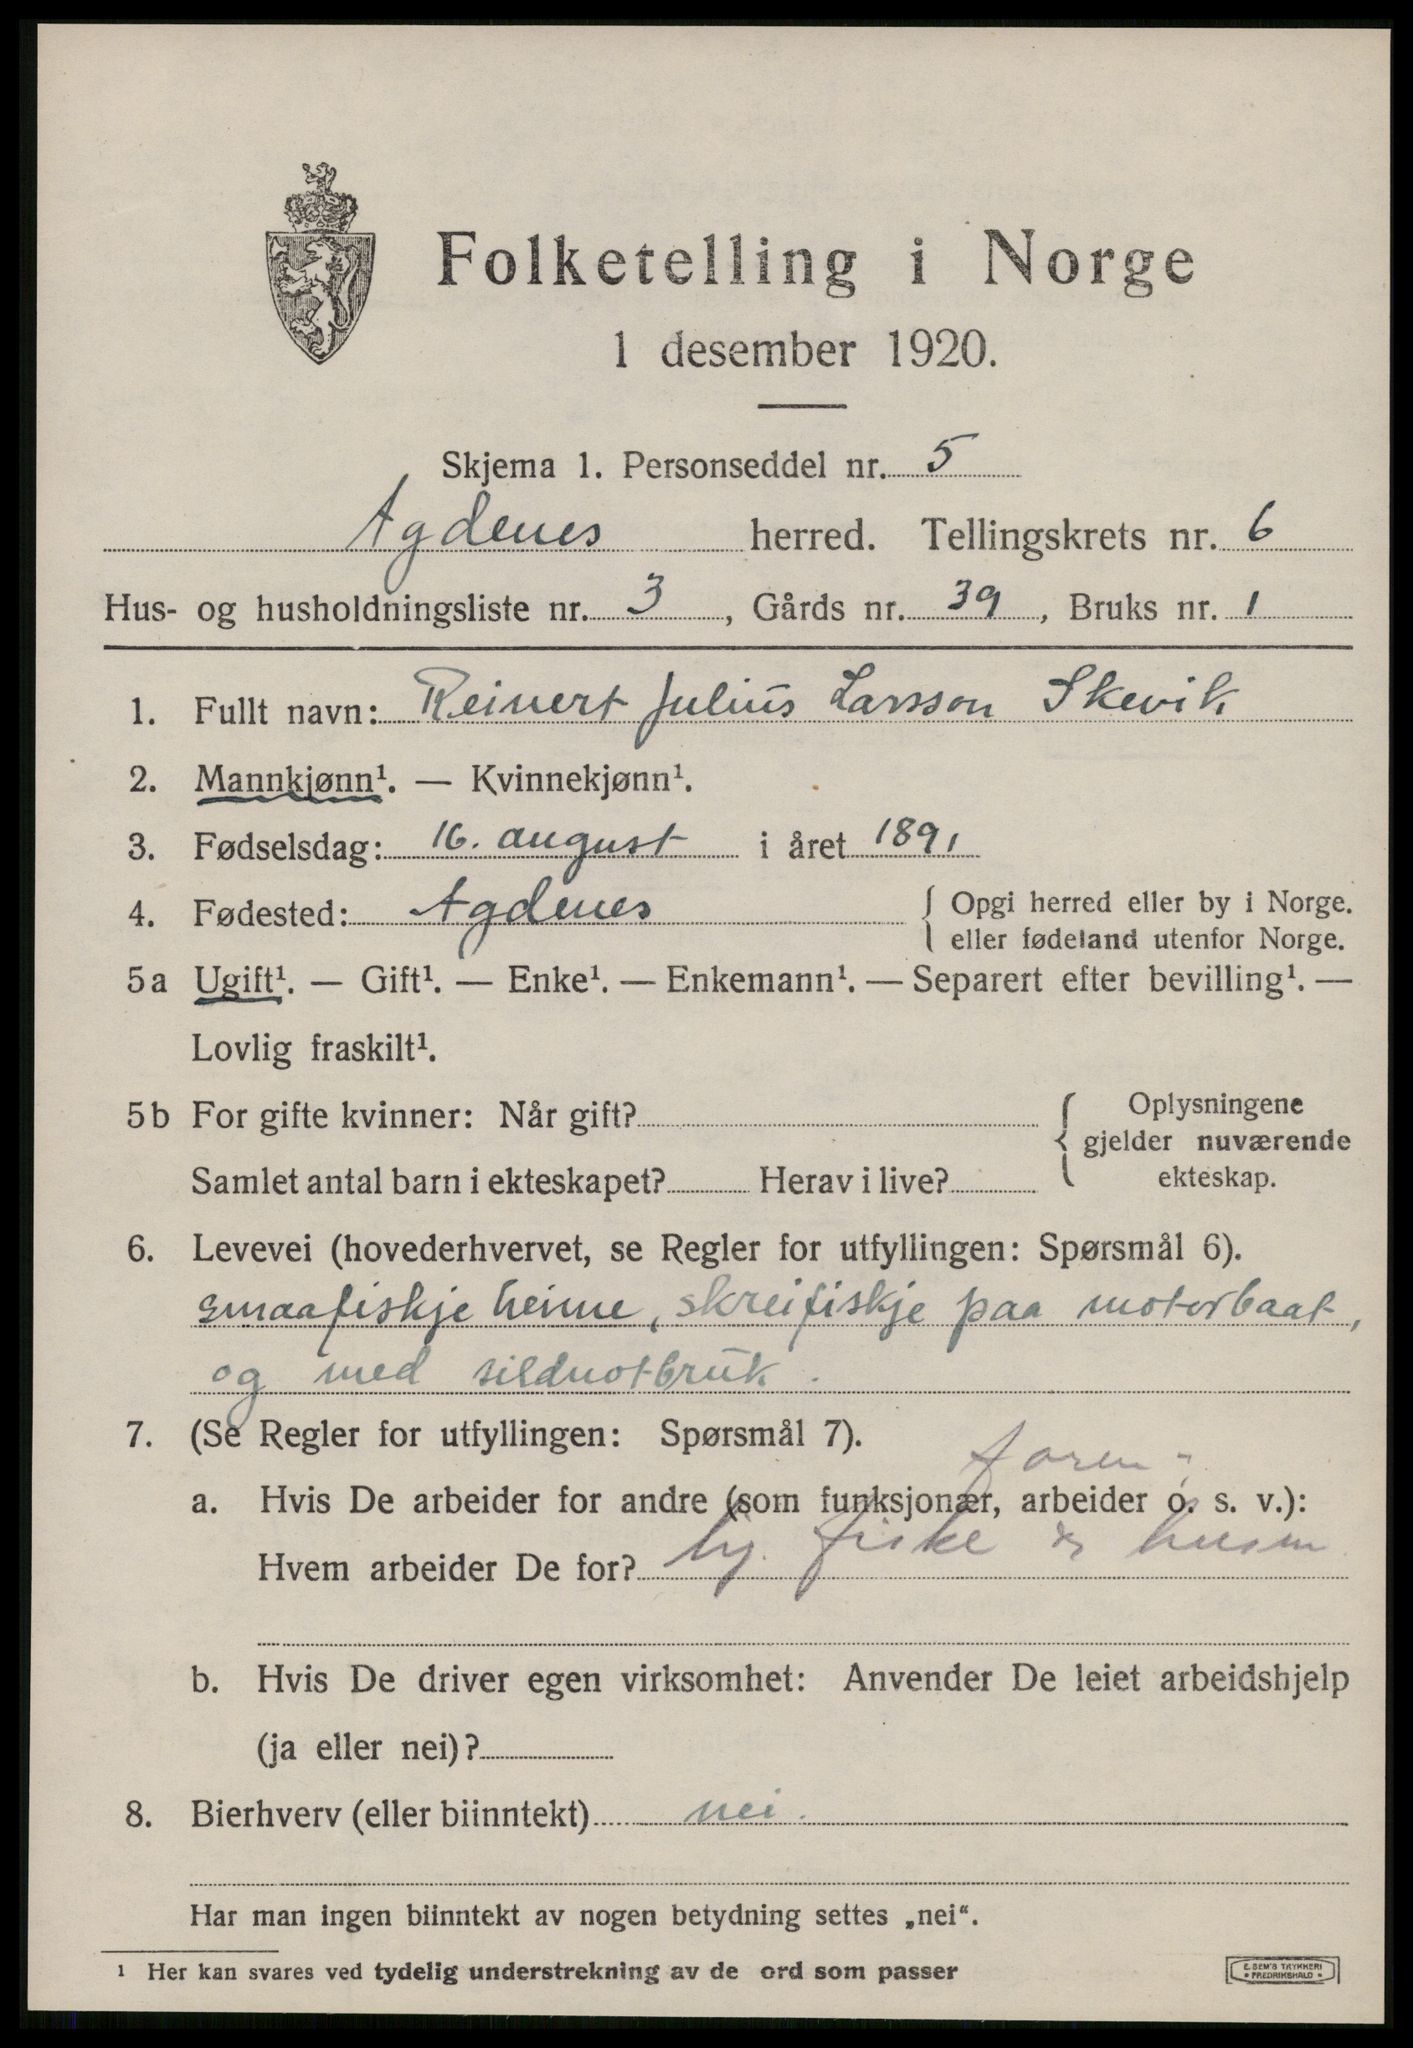 Folketelling i Norge
1 desember 1920.
Skjema 1. Personseddel nr. 5
Agdenes herred. Tellingskrets nr. 6
Hus- og husholdningsliste nr. 3, Gårds nr. 39, Bruks nr. 1
1. Fullt navn: Reinert Julius Larsson Skevik
2. Mannkjønn¹. — Kvinnekjønn¹.
3. Fødselsdag: 16. august i året 1891
4. Fødested: Agdenes { Opgi herred eller by i Norge.
eller fødeland utenfor Norge.
5a Ugift¹. — Gift¹. — Enke¹. — Enkemann¹. — Separert efter bevilling¹. —
Lovlig fraskilt¹.
5b For gifte kvinner: Når gift? { Oplysningene
gjelder nuværende
Samlet antal barn i ekteskapet? Herav i live? ekteskap.
6. Levevei (hovederhvervet, se Regler for utfyllingen: Spørsmål 6).
smaafiskje heime, skreifiskje paa motorbaat,
og med sildnotbruk.
7. (Se Regler for utfyllingen: Spørsmål 7).
faren
a. Hvis De arbeider for andre (som funksjonær, arbeider o. s. v.):
Hvem arbeider De for? fiske
b. Hvis De driver egen virksomhet: Anvender De leiet arbeidshjelp
(ja eller nei)?
8. Bierhverv (eller biinntekt) nei.
Har man ingen biinntekt av nogen betydning settes „nei“.
¹ Her kan svares ved tydelig understrekning av de ord som passer
E. SEM'S TRYKKERI
• FREDRIKSHALD •